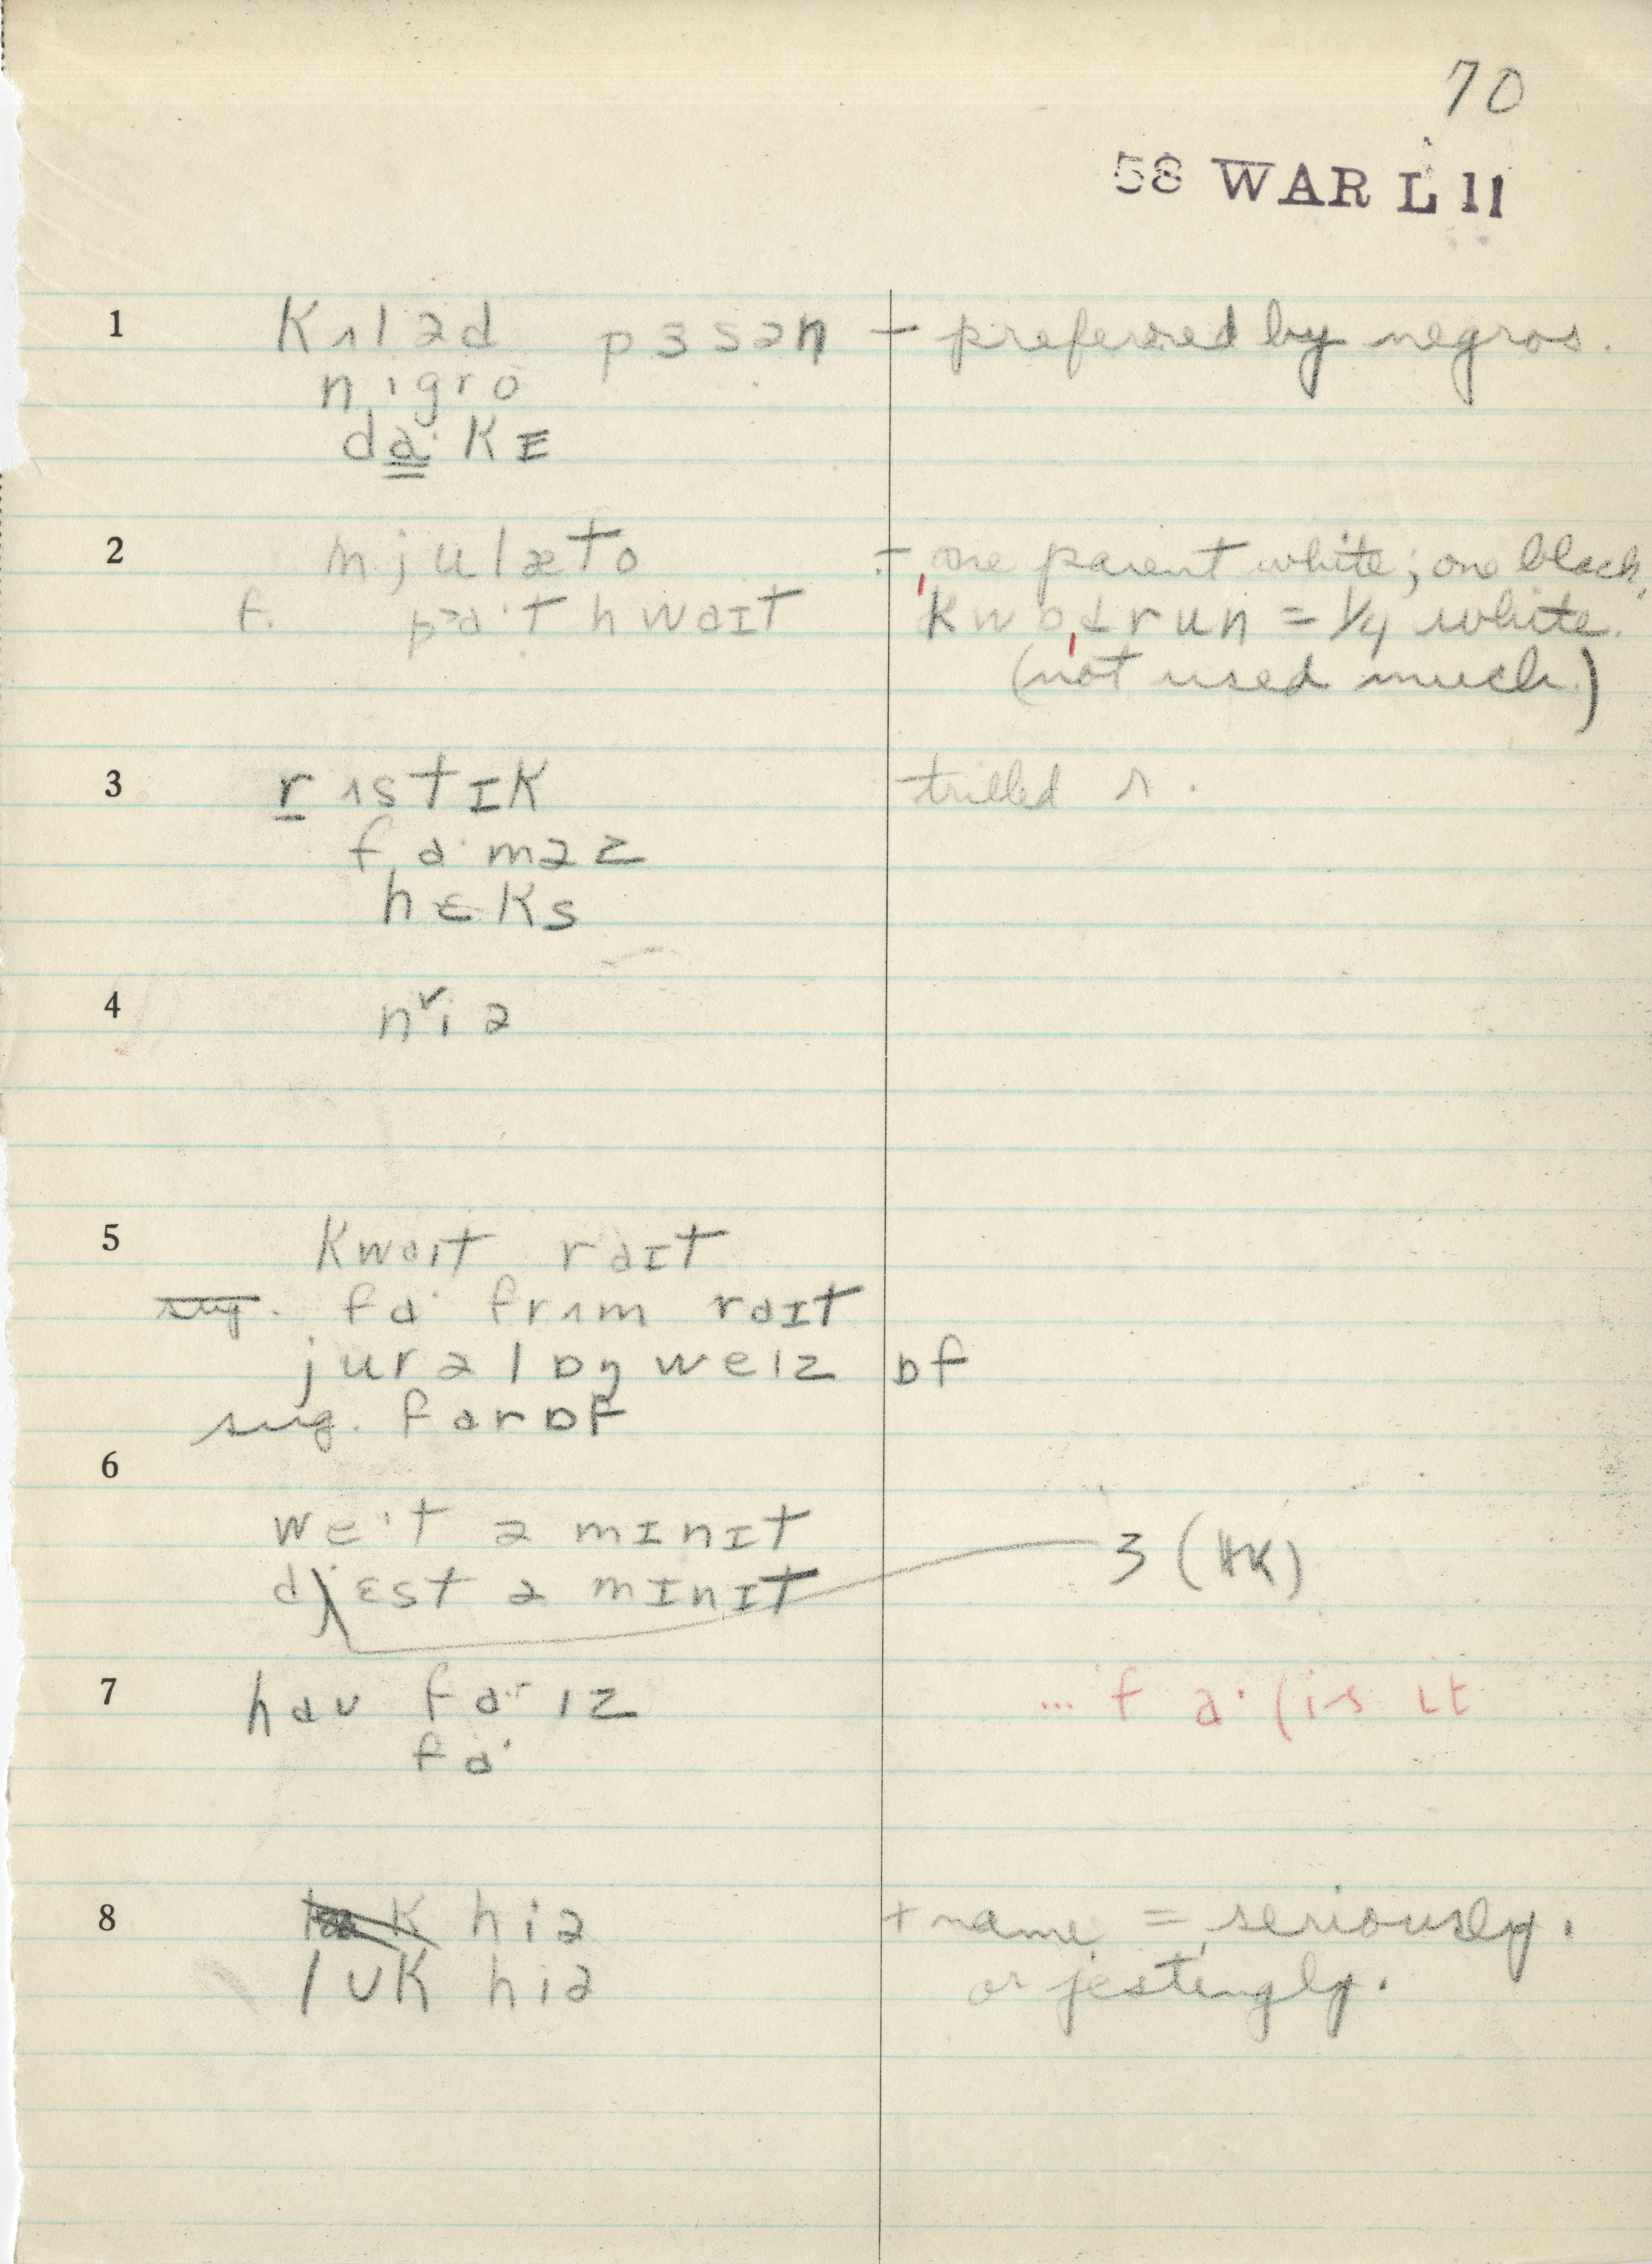 70
58 WAR L 11
1 kʌləd pɜsən — preferred by negros.
nigro
da·kɪ
2 mjulæto — one parent white; one black.
f. pa·t hwaɪt kwɒdrun = 1/4 white.
(not used much.)
3 rʌstɪk trilled r.
fa·məz
hɛks
4 niə
5 kwaɪt raɪt
sug. fa· frʌm raɪt
jur ə lɒŋ weɪz ɒf
sug. farɒf
6
we·t ə mɪnɪt 3 (HK)
dʒɛst ə mɪnɪt
7 haʊ fa·r ɪz ... f a· (is it
fa·
8 hiə + name = seriously.
lʊk hiə or jestingly.